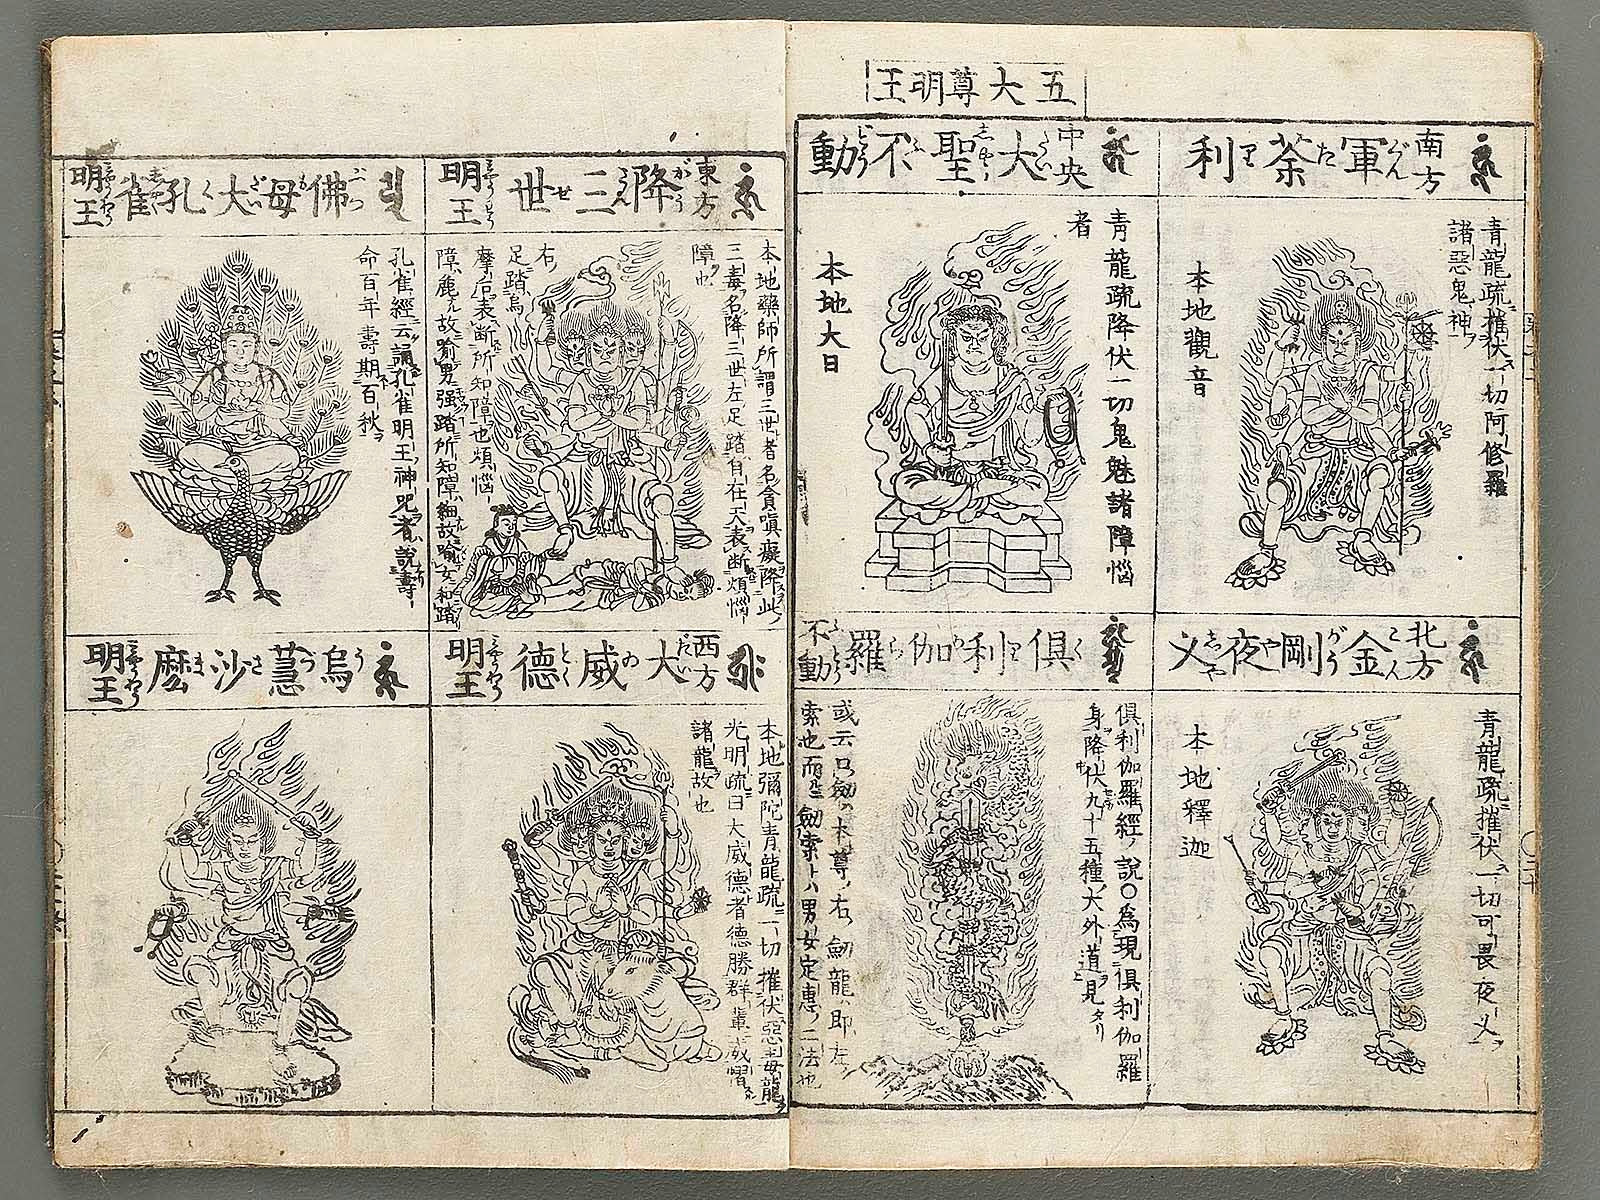 五大尊明王
南方
軍荼利
ぐんだり
青龍疏摧伏一切阿修羅
諸惡鬼神
本地觀音
中央
大聖不動
青龍疏降伏一切鬼魅諸障惱
者
本地大日
北方
金剛夜叉
こんがうやしや
青龍疏摧伏一切可畏夜叉
本地釋迦
倶利伽羅不動
倶利伽羅經説〇為現倶利伽羅
身降伏九十五種大外道見タリ
或云只劔
本尊右劔龍即左
索也而
劔索ハ男女定惠二法也
東方
降三世明王
本地藥師所謂三世者名貪嗔癡降此
三毒名降三世左足踏自在天表断煩惱
障也
右
足踏烏
摩后表断所知障也煩惱
障麁故喻男强踏所知障細故喻女和踏
佛母大孔雀明王
孔雀經云誦孔雀明王神咒者説壽
命百年壽期百秋
西方
大威德明王
本地彌陀青龍疏一切摧伏惡毒龍
光明疏曰大威德者德勝群輩威慴
諸龍故也
烏蒭沙麼明王